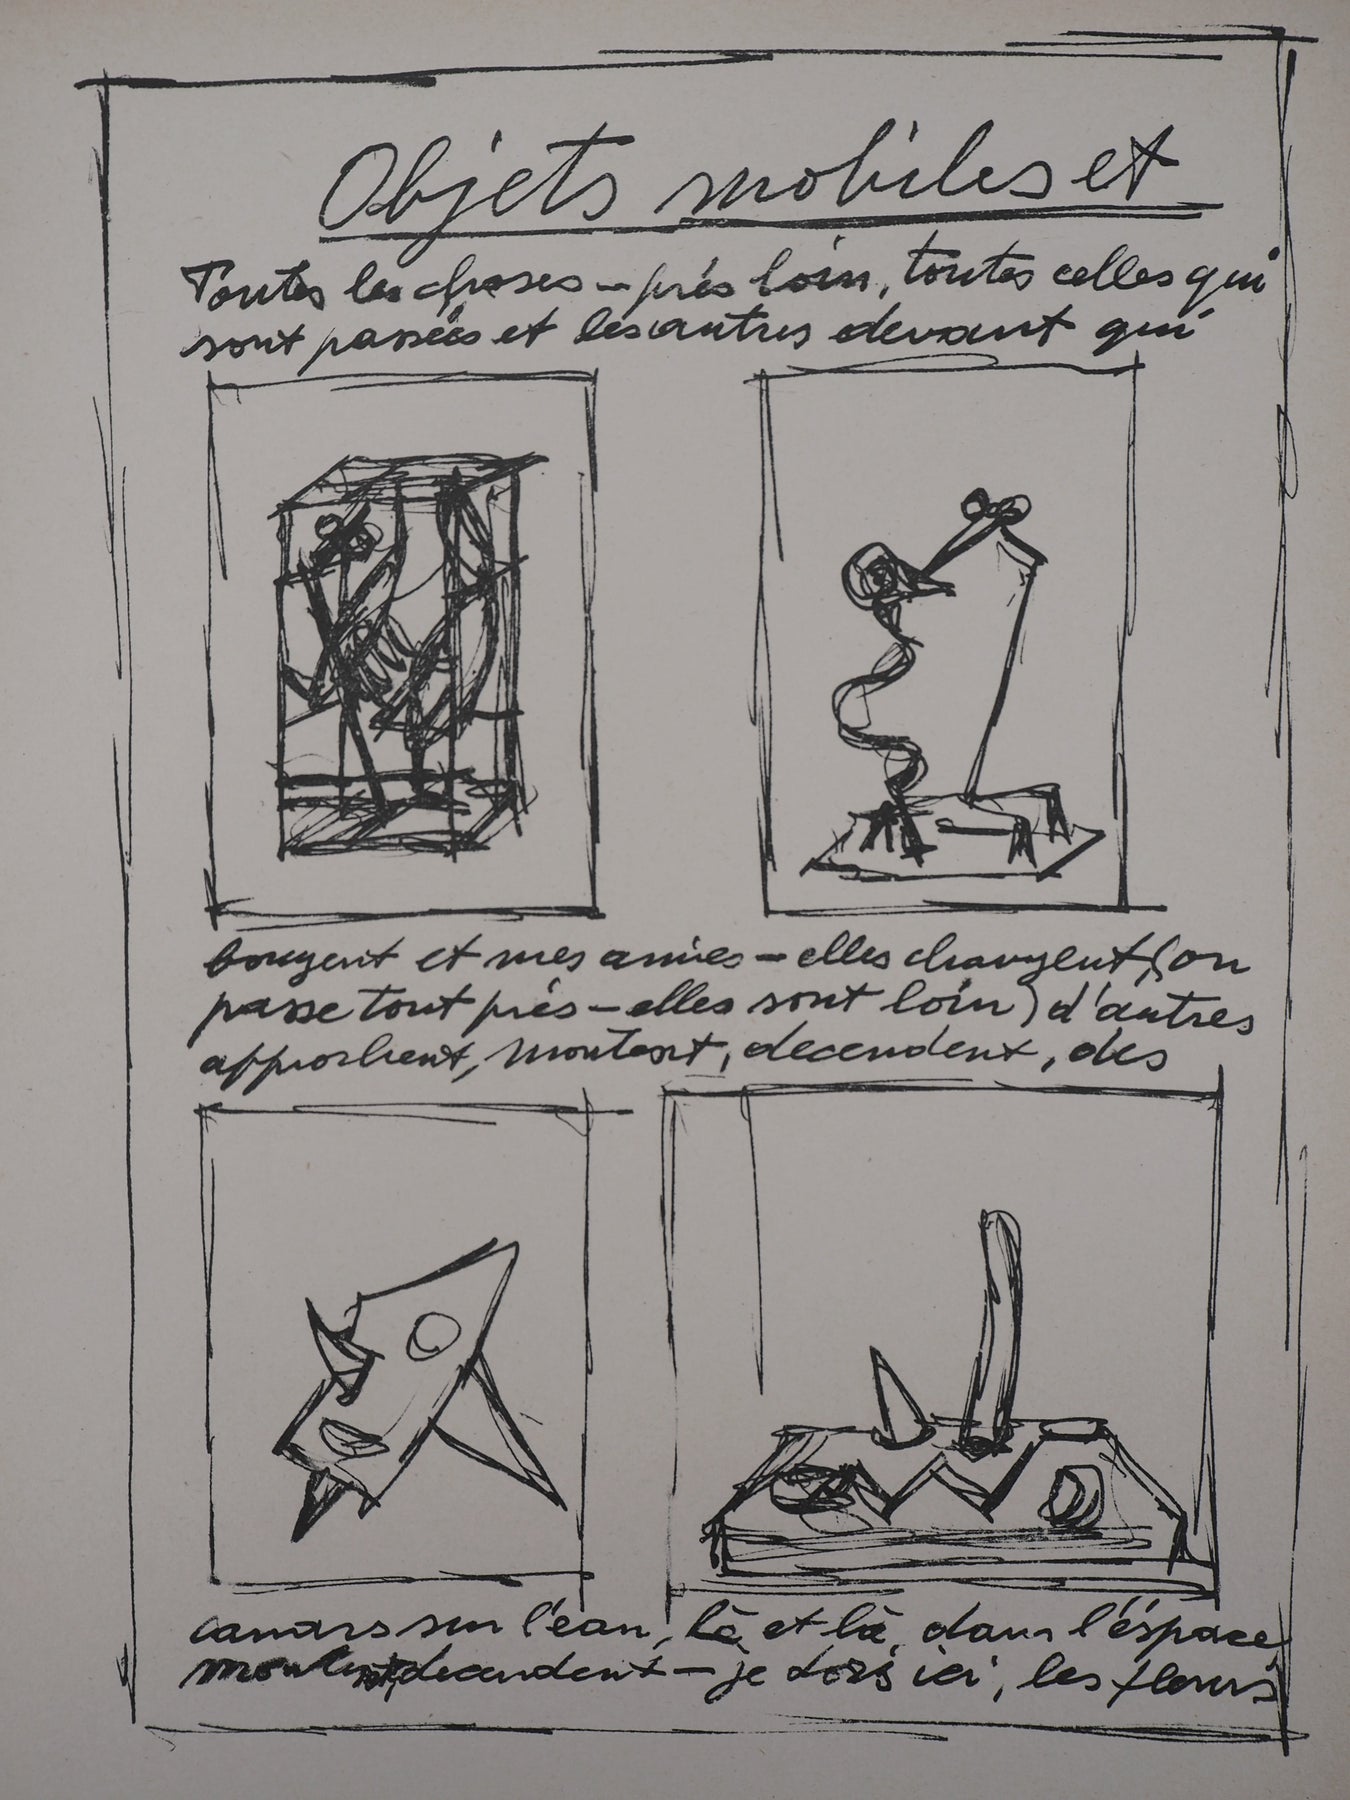 Objets mobiles et
Toutes les choses – près loin, toutes celles qui
sont passées et les autres devant qui
bougent et mes amies – elles changent (on
passe tout près – elles sont loin) d'autres
approchent, montent, decendent, des
canars sur l'eau, là et là, dans l'éspace,
montent, decendent – je dors ici, les fleurs